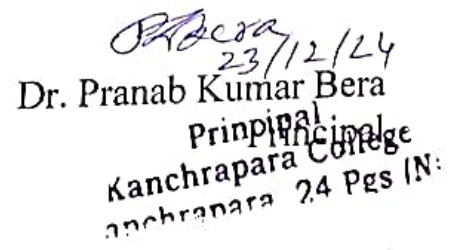 PKBera
23/12/24
Dr. Pranab Kumar Bera
Principal
Principal
Kanchrapara College
anchrapara, 24 Pgs (N: